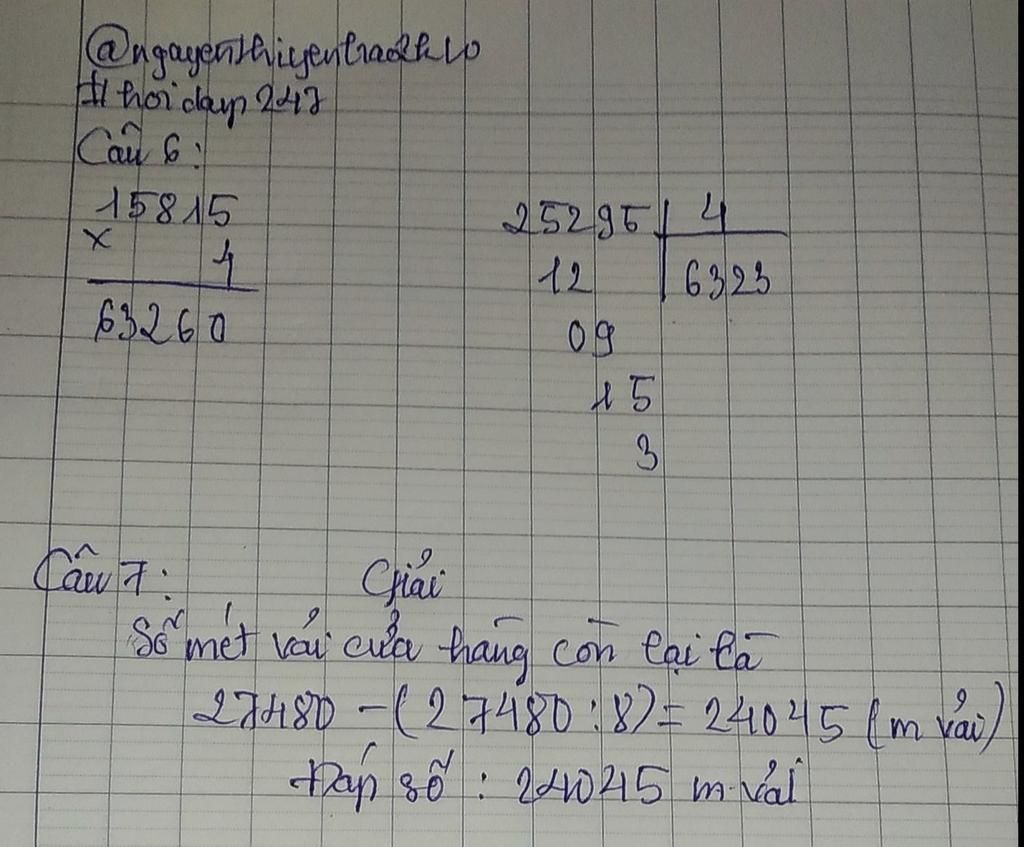 @nguyenthiyentrad2k10
#hoidap247
Câu 6:
15815
x 4
63260
25295 4
12 6323
09
15
3
Câu 7: Giải
Số mét vải cửa hàng còn lại là
27480 - (27480 : 8) = 24045 (m vải)
Đáp số : 24045 m vải